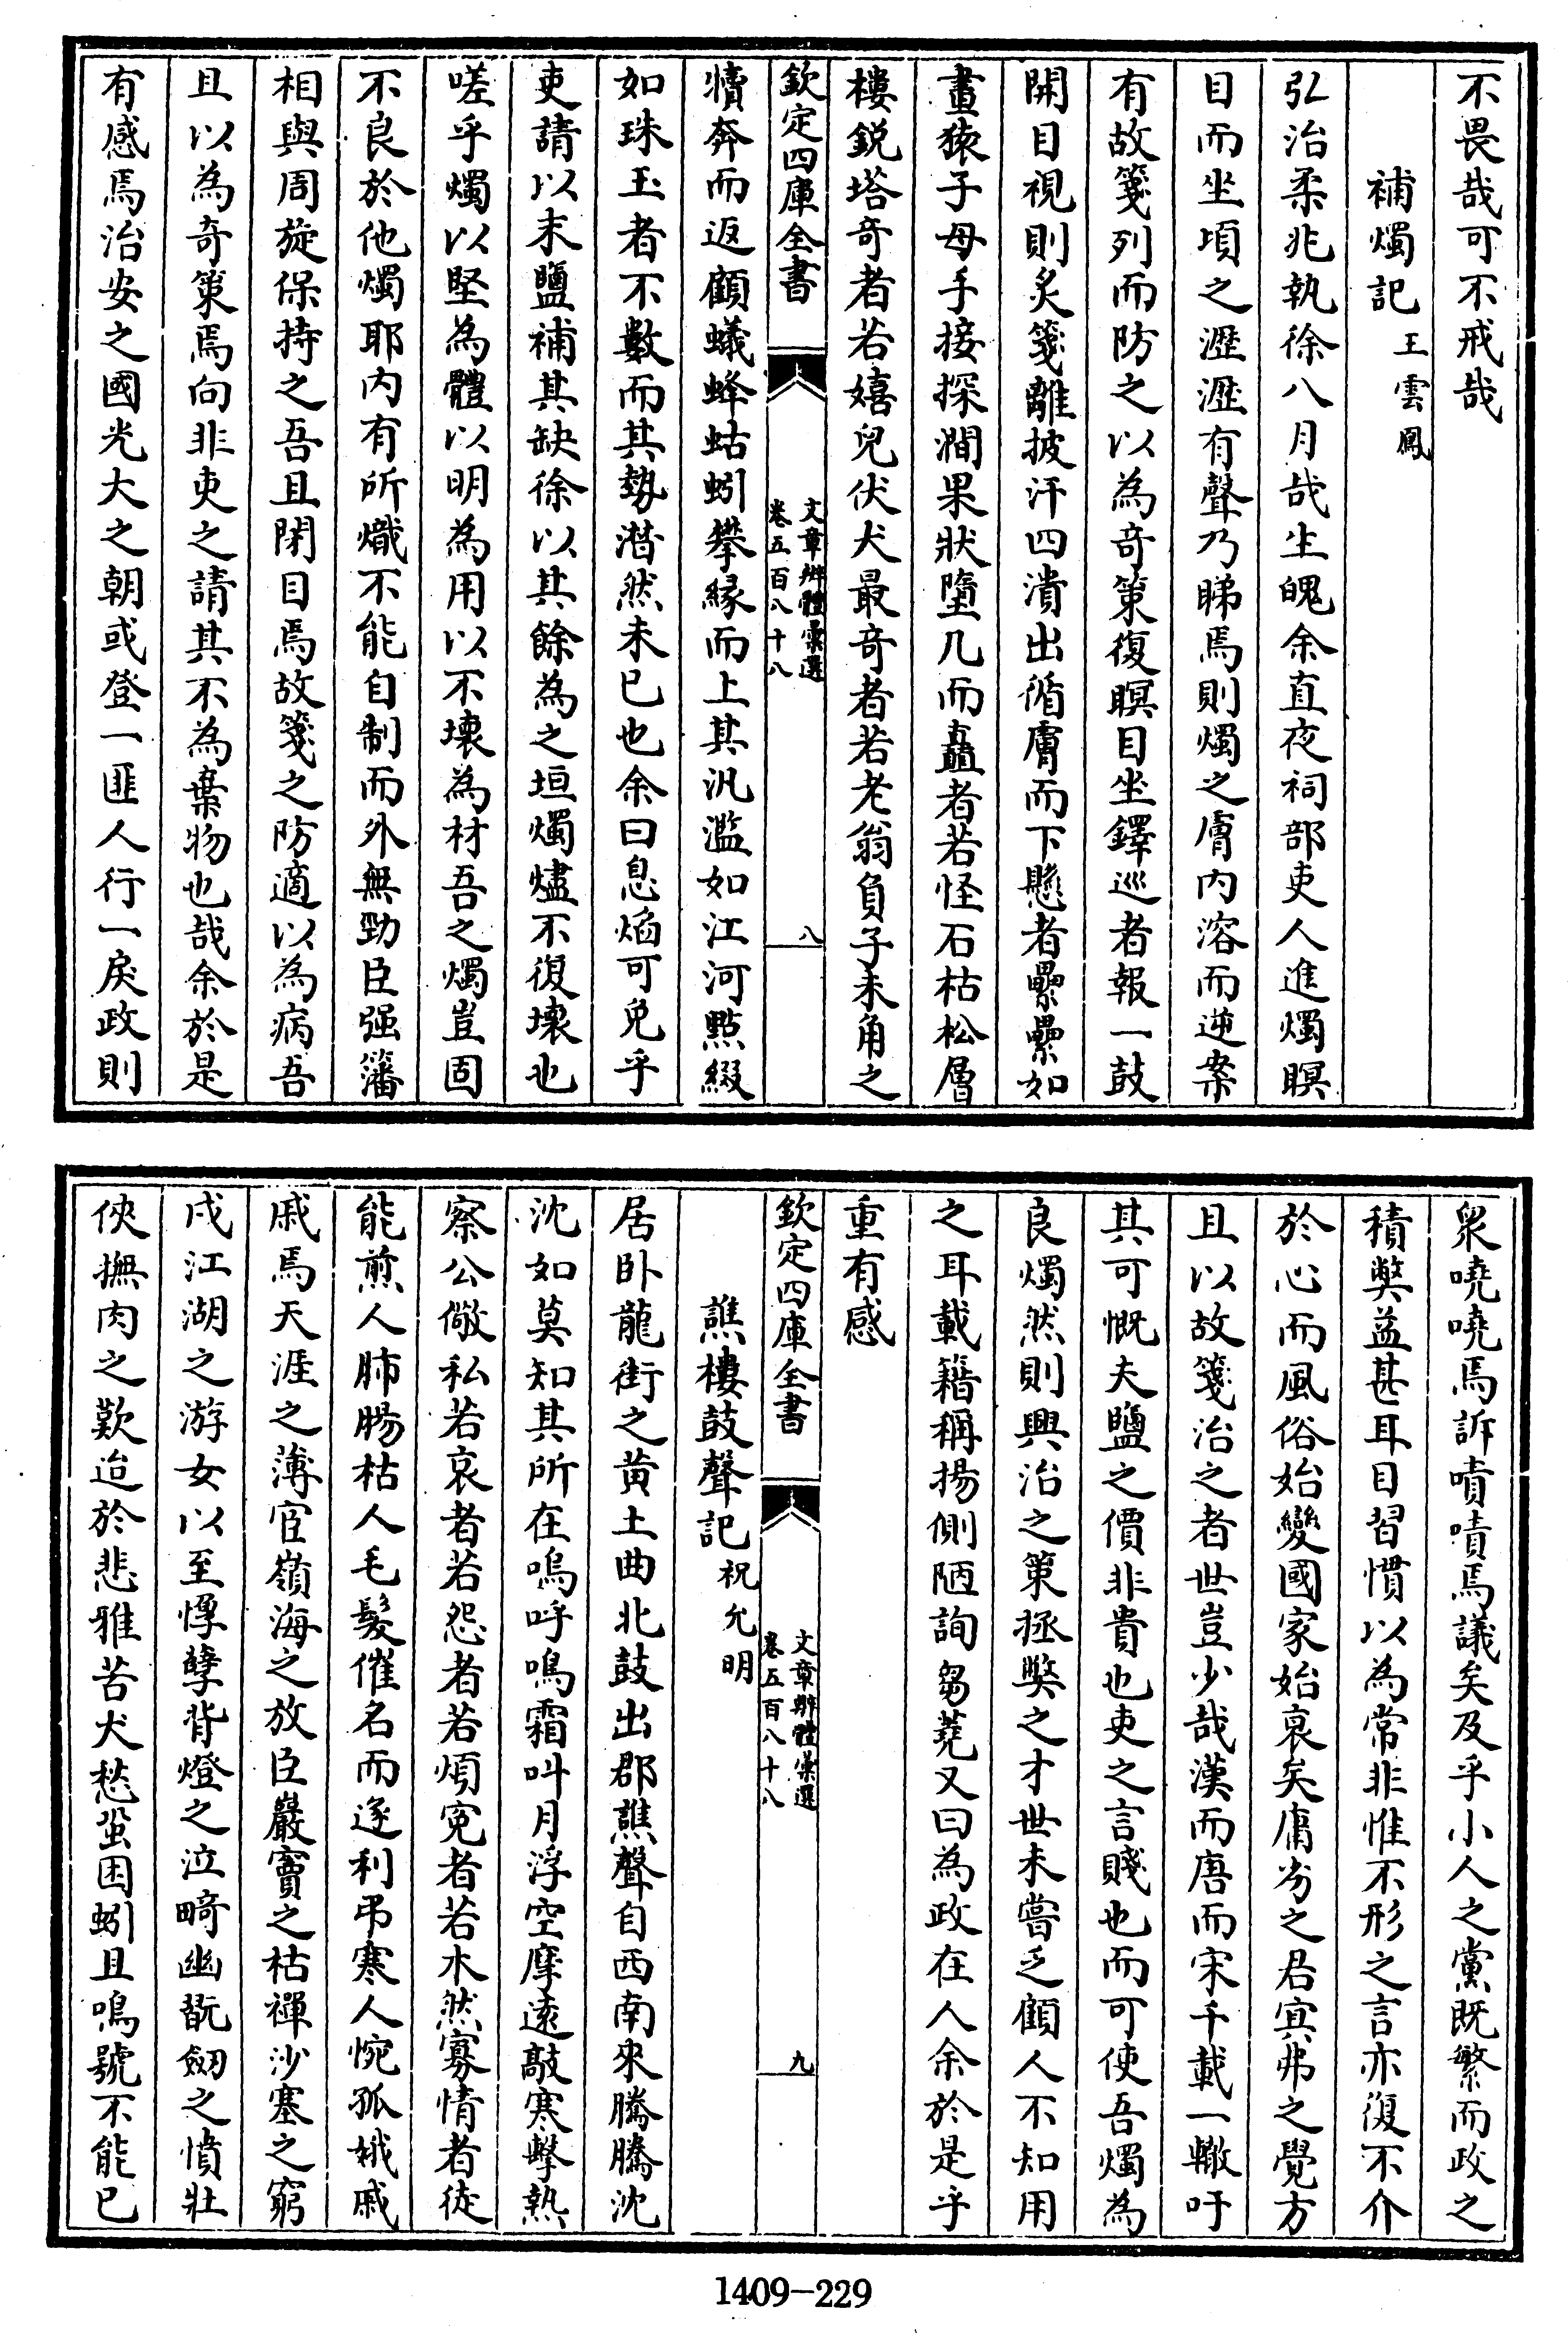 不畏哉可不戒哉
補燭記王雲鳳
弘治柔兆執徐八月哉生魄余直夜祠部吏人進燭瞑
目而坐頃之瀝瀝有聲乃睇焉則燭之膚内溶而逆案
有故箋列而防之以為奇策復瞑目坐鐸巡者報一鼓
開目視則炙箋離披汗四潰出循膚而下懸者纍纍如
畫猿子母手接探澗果狀墮几而矗者若怪石枯松層
樓銳塔奇者若嬉兒伏犬最奇者若老翁負子未角之
欽定四庫全書
文章辨體彙選
卷五百八十八
八
犢奔而返顧蟻蜂蛄蚓攀緣而上其汎濫如江河點綴
如珠玉者不數而其勢潛然未已也余曰息焰可免乎
吏請以末鹽補其缺徐以其餘為之垣燭燼不復壞也
嗟乎燭以堅為體以明為用以不壞為材吾之燭豈固
不良於他燭耶内有所熾不能自制而外無勁臣强藩
相與周旋保持之吾且閉目焉故箋之防適以為病吾
且以為奇策焉向非吏之請其不為棄物也哉余於是
有感焉治安之國光大之朝或登一匪人行一戾政則
衆嘵嘵焉訴嘖嘖焉議矣及乎小人之黨既繁而政之
積獘益甚耳目習慣以為常非惟不形之言亦復不介
於心而風俗始變國家始衰矣庸劣之君寘弗之覺方
且以故箋治之者世豈少哉漢而唐而宋千載一轍吁
其可慨夫鹽之價非貴也吏之言賤也而可使吾燭為
良燭然則興治之策拯獘之才世未嘗乏顧人不知用
之耳載籍稱揚側陋詢芻蕘又曰為政在人余於是乎
重有感
欽定四庫全書
文章辨體彙選
卷五百八十八
九
譙樓鼓聲記祝允明
居卧龍街之黄土曲北鼓出郡譙聲自西南來騰騰沈
沈如莫知其所在嗚呼鳴霜叫月浮空摩遠敲寒擊熱
察公儆私若哀者若怨者若煩寃者若水然寡情者徒
能煎人肺腸枯人毛髮催名而逐利弔寒人惋孤娥戚
戚焉天涯之薄宦嶺海之放臣巖竇之枯禪沙塞之窮
戍江湖之游女以至惸孽背燈之泣畸幽翫劒之憤壯
俠撫肉之歎迨於悲雅苦犬愁蛩困蚓且鳴號不能已
1409-229